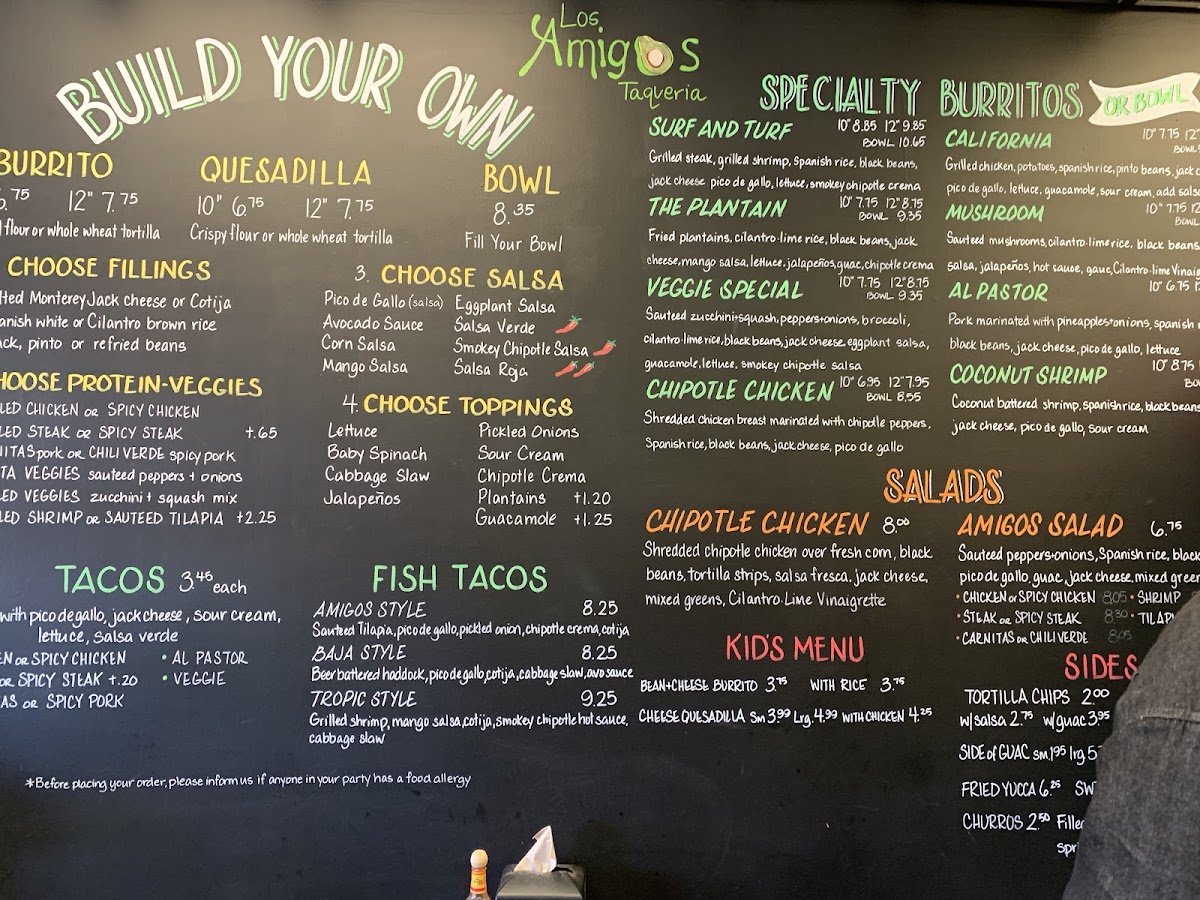 Los
Amigos
Taqueria
BUILD YOUR OWN
BURRITO
.75 12" 7.75
flour or whole wheat tortilla
QUESADILLA
10" 6.75 12" 7.75
Crispy flour or whole wheat tortilla
BOWL
8.35
Fill Your Bowl
CHOOSE FILLINGS
Monterey Jack cheese or Cotija
white or Cilantro brown rice
pinto or refried beans
PROTEIN-VEGGIES
CHICKEN or SPICY CHICKEN
STEAK or SPICY STEAK +.65
pork or CHILI VERDE spicy pork
VEGGIES sauteed peppers + onions
VEGGIES zucchini + squash mix
SHRIMP or SAUTEED TILAPIA +2.25
3. CHOOSE SALSA
Pico de Gallo (salsa)
Avocado Sauce
Corn Salsa
Mango Salsa
Eggplant Salsa
Salsa Verde
Smokey Chipotle Salsa
Salsa Roja
4. CHOOSE TOPPINGS
Lettuce
Baby Spinach
Cabbage Slaw
Jalapeños
Pickled Onions
Sour Cream
Chipotle Crema
Plantains +1.20
Guacamole +1.25
TACOS 3.45 each
with pico de gallo, jack cheese, sour cream,
lettuce, salsa verde
or SPICY CHICKEN
or SPICY STEAK +.20
or SPICY PORK
• AL PASTOR
• VEGGIE
FISH TACOS
AMIGOS STYLE 8.25
Sauteed Tilapia, pico de gallo, pickled onion, chipotle crema, cotija
BAJA STYLE 8.25
Beer battered haddock, pico de gallo, cotija, cabbage slaw, avo sauce
TROPIC STYLE 9.25
Grilled shrimp, mango salsa, cotija, smokey chipotle hot sauce,
cabbage slaw
*Before placing your order, please inform us if anyone in your party has a food allergy
SPECIALTY BURRITOS OR BOWL
SURF AND TURF 10" 8.85 12" 9.85
BOWL 10.65
Grilled steak, grilled shrimp, spanish rice, black beans,
jack cheese pico de gallo, lettuce, smokey chipotle crema
THE PLANTAIN 10" 7.75 12" 8.75
BOWL 9.35
Fried plantains, cilantro-lime rice, black beans, jack
cheese, mango salsa, lettuce, jalapeños, guac, chipotle crema
VEGGIE SPECIAL 10" 7.75 12" 8.75
BOWL 9.35
Sauteed zucchini+squash, peppers+onions, broccoli,
cilantro-lime rice, black beans, jack cheese, eggplant salsa,
guacamole, lettuce, smokey chipotle salsa
CHIPOTLE CHICKEN 10" 6.95 12" 7.95
BOWL 8.55
Shredded chicken breast marinated with chipotle peppers,
Spanish rice, black beans, jack cheese, pico de gallo
CALIFORNIA 10" 7.75 12"
BOWL
Grilled chicken, potatoes, spanish rice, pinto beans, jack
pico de gallo, lettuce, guacamole, sour cream, add salsa
MUSHROOM 10" 7.75 12
BOWL
Sauteed mushrooms, cilantro-lime rice, black beans,
salsa, jalapeños, hot sauce, gauc, Cilantro-lime
AL PASTOR 10" 6.75
Pork marinated with pineapples+onions, spanish
black beans, jack cheese, pico de gallo, lettuce
COCONUT SHRIMP 10" 8.75
Coconut battered shrimp, spanish rice, black beans
jack cheese, pico de gallo, sour cream
SALADS
CHIPOTLE CHICKEN 8.00
Shredded chipotle chicken over fresh corn, black
beans, tortilla strips, salsa fresca, jack cheese,
mixed greens, Cilantro-Lime Vinaigrette
AMIGOS SALAD 6.75
Sauteed peppers+onions, Spanish rice, black
pico de gallo, guac, jack cheese, mixed
• CHICKEN or SPICY CHICKEN 8.05 • SHRIMP
• STEAK or SPICY STEAK 8.30
• CARNITAS or CHILI VERDE 8.05
KID'S MENU
BEAN+CHEESE BURRITO 3.75 WITH RICE 3.75
CHEESE QUESADILLA Sm 3.99 Lrg. 4.99 WITH CHICKEN 4.25
SIDES
TORTILLA CHIPS 2.00
w/salsa 2.75 w/guac 3.95
SIDE of GUAC sm.1.95 lrg
FRIED YUCCA 6.25
CHURROS 2.50